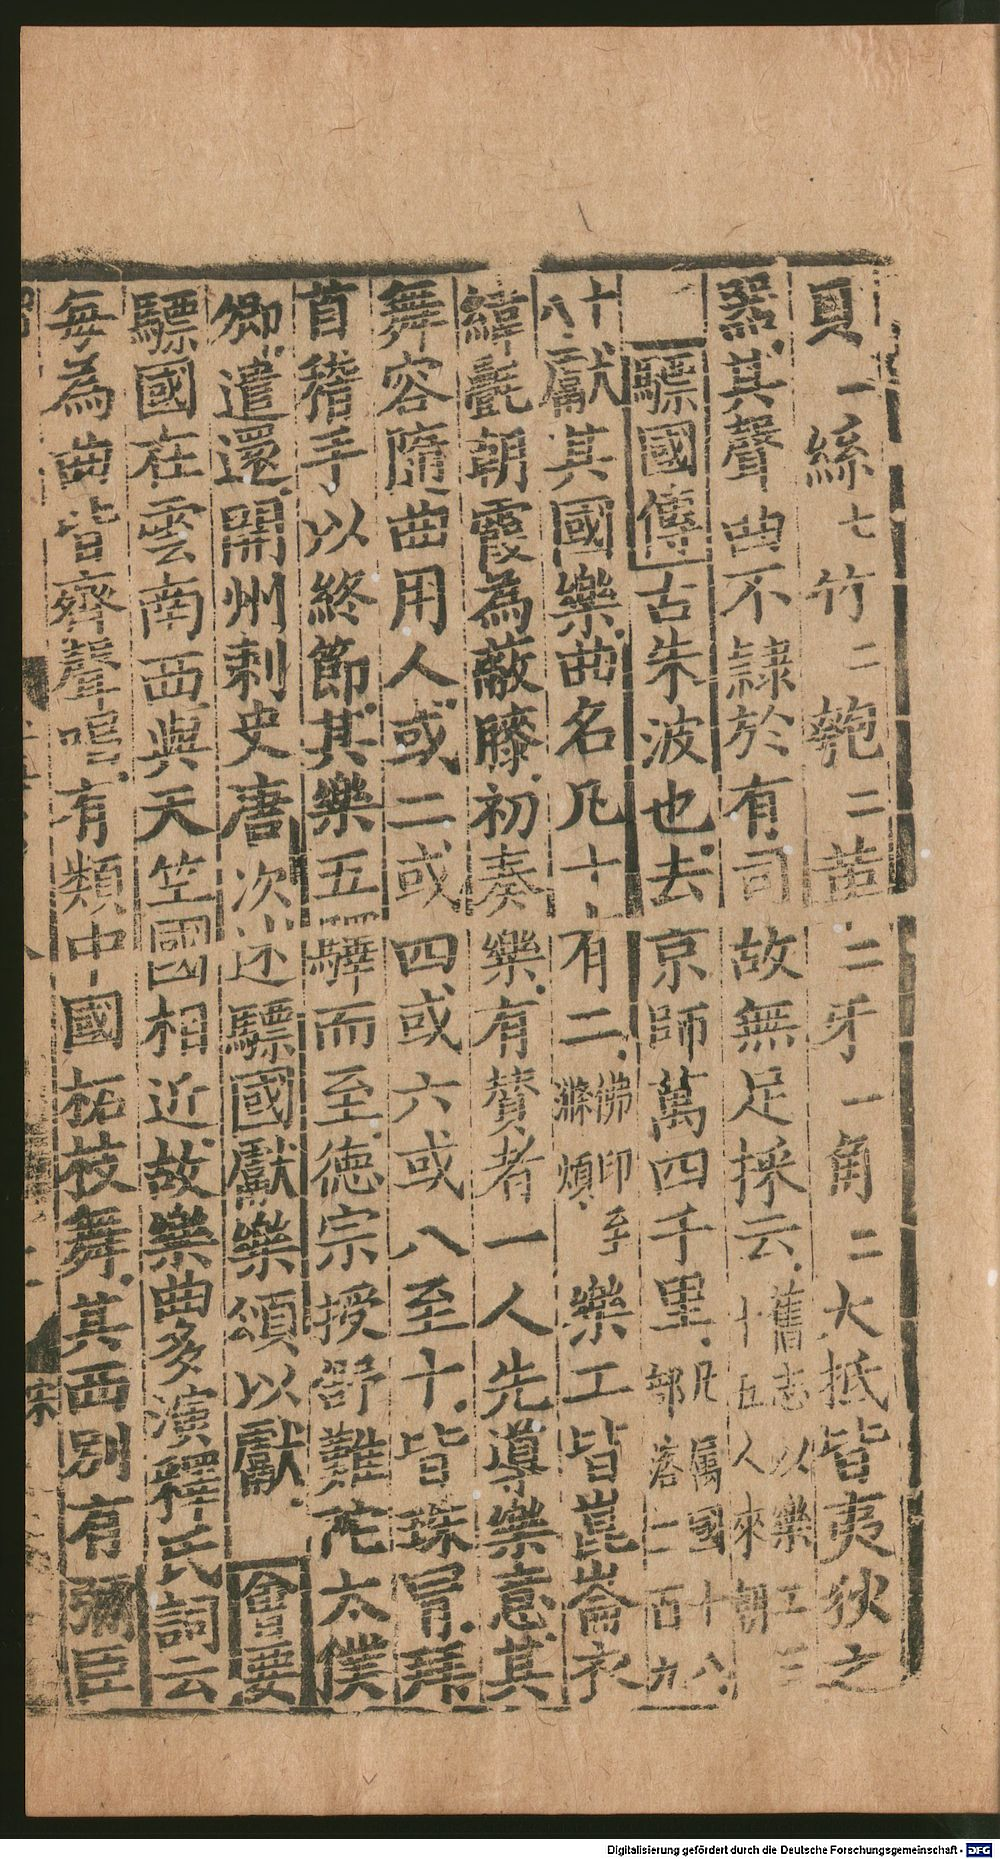 貝一絲七竹二匏二革二牙一角二大抵皆夷狄之
器其聲曲不隸於有司故無足採云舊志以樂工三十五人來朝
驃國傳古朱波也去京師萬四千里凡屬國十八部落二百九
十八獻其國樂曲名凡十有二佛印至滌煩樂工皆崑崙衣
絳㲲朝霞為蔽膝初奏樂有贊者一人先導樂意其
舞容隨曲用人或二或四或六或八至十皆珠冒拜
首稽手以終節其樂五驛而至德宗授舒難陀太僕
卿遣還開州刺史唐次述驃國獻樂頌以獻會要
驃國在雲南西與天竺國相近故樂曲多演釋氏詞云
每為曲皆齊聲唱有類中國柘枝舞其西別有彌臣
Digitalisierung gefördert durch die Deutsche Forschungsgemeinschaft - DFG